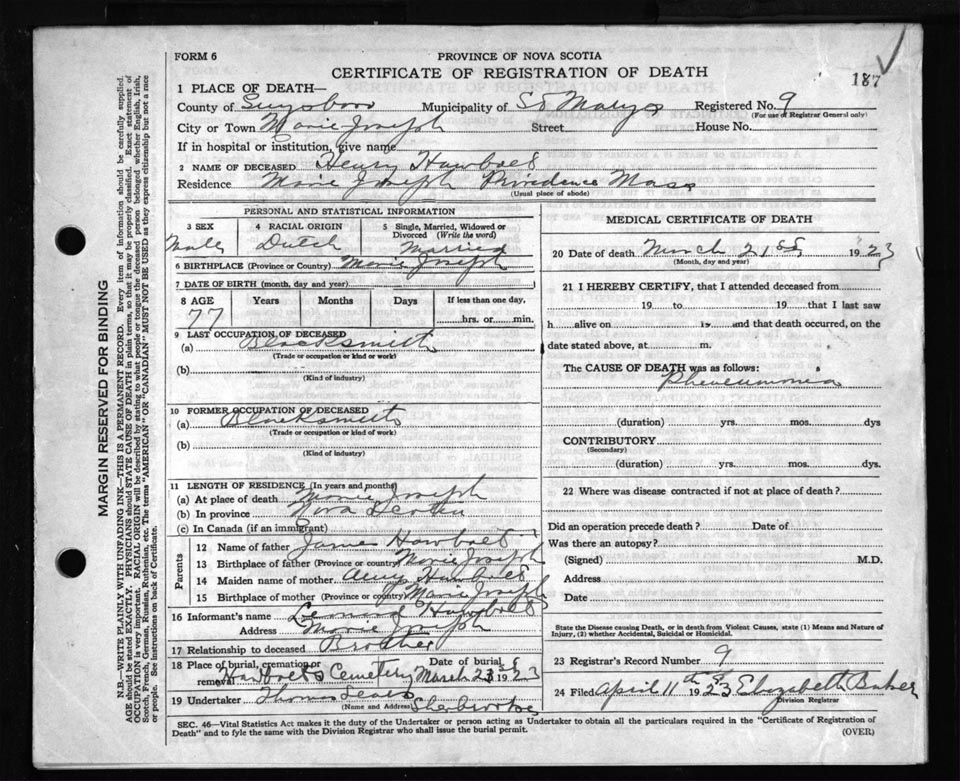 FORM 6
PROVINCE OF NOVA SCOTIA
CERTIFICATE OF REGISTRATION OF DEATH
187
1 PLACE OF DEATH—
County of Guysboro Municipality of St Marys Registered No. 9
(For use of Registrar General only)
City or Town Marie Joseph Street House No.
If in hospital or institution, give name
2 NAME OF DECEASED Henry Hawbolt
Residence Marie Joseph Providence Mass
(Usual place of abode)
PERSONAL AND STATISTICAL INFORMATION
3 SEX Male
4 RACIAL ORIGIN Dutch
5 Single, Married, Widowed or Divorced (Write the word) Married
6 BIRTHPLACE (Province or Country) Marie Joseph
7 DATE OF BIRTH (month, day and year)
8 AGE Years Months Days If less than one day,
77 hrs. or min.
9 LAST OCCUPATION OF DECEASED
(a) Blacksmith
(Trade or occupation or kind of work)
(b)
(Kind of industry)
10 FORMER OCCUPATION OF DECEASED
(a) Blacksmith
(Trade or occupation or kind of work)
(b)
(Kind of industry)
11 LENGTH OF RESIDENCE (In years and months)
(a) At place of death Marie Joseph
(b) In province Nova Scotia
(c) In Canada (if an immigrant)
Parents
12 Name of father James Hawbolt
13 Birthplace of father (Province or country) Marie Joseph
14 Maiden name of mother Hawbolt
15 Birthplace of mother (Province or country) Marie Joseph
16 Informant's name Hawbolt
Address Marie Joseph
17 Relationship to deceased Brother
18 Place of burial, cremation or removal Hawbolts Cemetery Date of burial March 23 1923
19 Undertaker Thomas
(Name and Address) Sherbrooke
MEDICAL CERTIFICATE OF DEATH
20 Date of death March 21st 1923
(Month, day and year)
21 I HEREBY CERTIFY, that I attended deceased from
19 to 19 that I last saw
h alive on 19 and that death occurred, on the
date stated above, at m.
The CAUSE OF DEATH was as follows:
Pheneummea
(duration) yrs. mos. dys
CONTRIBUTORY
(Secondary)
(duration) yrs. mos. dys.
22 Where was disease contracted if not at place of death?
Did an operation precede death? Date of
Was there an autopsy?
(Signed) M.D.
Address
Date
State the Disease causing Death, or in death from Violent Causes, state (1) Means and Nature of
Injury, (2) whether Accidental, Suicidal or Homicidal.
23 Registrar's Record Number 9
24 Filed April 11th 1923 Elizabeth Baker
Division Registrar
SEC. 46—Vital Statistics Act makes it the duty of the Undertaker or person acting as Undertaker to obtain all the particulars required in the "Certificate of Registration of
Death" and to fyle the same with the Division Registrar who shall issue the burial permit.
(OVER)
MARGIN RESERVED FOR BINDING
N.B.—WRITE PLAINLY WITH UNFADING INK—THIS IS A PERMANENT RECORD. Every item of information should be carefully supplied.
AGE should be stated EXACTLY. PHYSICIANS should STATE CAUSE OF DEATH in plain terms, so that it may be properly classified. Exact statement of
OCCUPATION is very important. RACIAL ORIGIN will be described by stating to what people or tongue the deceased person belonged whether English, Irish,
Scotch, French, German, Russian, Ruthenian, etc. The terms "AMERICAN" OR "CANADIAN" MUST NOT BE USED as they express citizenship but not a race
or people. See instructions on back of Certificate.